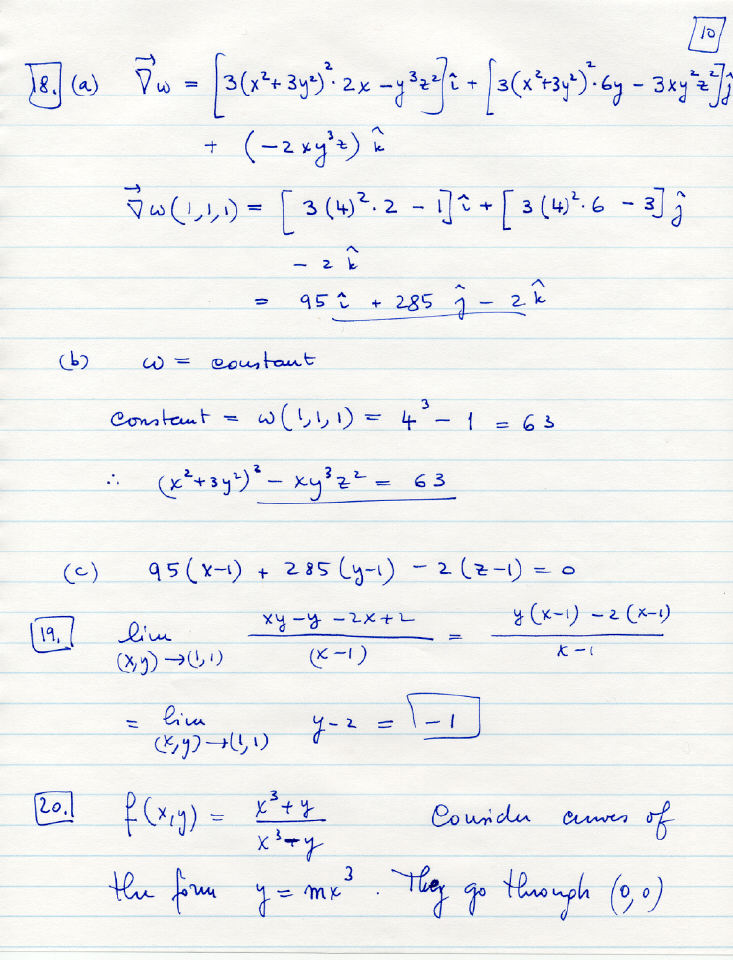 10
18. (a) ∇⃗w = [3(x²+3y²)²·2x − y³z²] î + [3(x²+3y²)²·6y − 3xy²z²] ĵ
+ (−2xy³z) k̂
∇⃗w(1,1,1) = [3(4)²·2 − 1] î + [3(4)²·6 − 3] ĵ
− 2 k̂
= 95 î + 285 ĵ − 2 k̂
(b) w = constant
constant = w(1,1,1) = 4³ − 1 = 63
∴ (x²+3y²)³ − xy³z² = 63
(c) 95(x−1) + 285(y−1) − 2(z−1) = 0
19. lim (x,y)→(1,1) (xy−y−2x+2)/(x−1) = (y(x−1) −2(x−1))/(x−1)
= lim (x,y)→(1,1) y−2 = −1
20. f(x,y) = (x³+y)/(x³−y) Consider curves of
the form y = mx³. They go through (0,0)